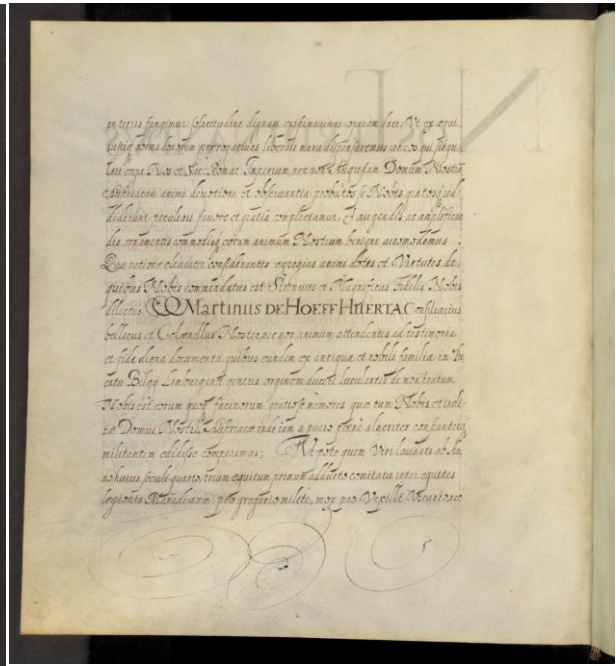 fungimur solicitudine dignam existimavimus operam dare, Ut ex æqui
iustiq norma honorum prerogativas liberali manu dispensaremus, ac eos qui singu
lari erga Nos et Sac. Roman. Imperium, nec non Augustam Domum Nostram
Austriacam animi devotione et observantia probatos se Nobis gratosq red
diderunt peculiari favore et gratia complectamur, augendis ac amplifican
dis ornamentis commodisq eorum animum Nostrum benigne accomodemus.
Qua ratione clementer considerantes egregias animi dotes et Virtutes de
quibus Nobis commendatus est Strenuus et Magnificus fidelis Nobis
dilectus Martinus DE HOEFF HUERTA Consiliarius
bellicus et Colonellus Noster, nec non animum attendentes ad testimonia
et fide digna documenta quibus eundem ex antiqua et nobili familia in Du
catu Belgij Lemburgensi generis originem ducere luculenter demonstratum
Nobis est eorum quoq facinorum gratiose memores quæ tum Nobis et incli
tæ Domui Nostræ Austriacæ inde iam a puero alacriter constanterq
militantem edidisse comperimus; Utpote quem Veri lavante ab An
no huius seculi quarto, trium equitum primum adducto comitatu inter equites
legionis pro gregario milite, mox pro Vexilli Vicario ac